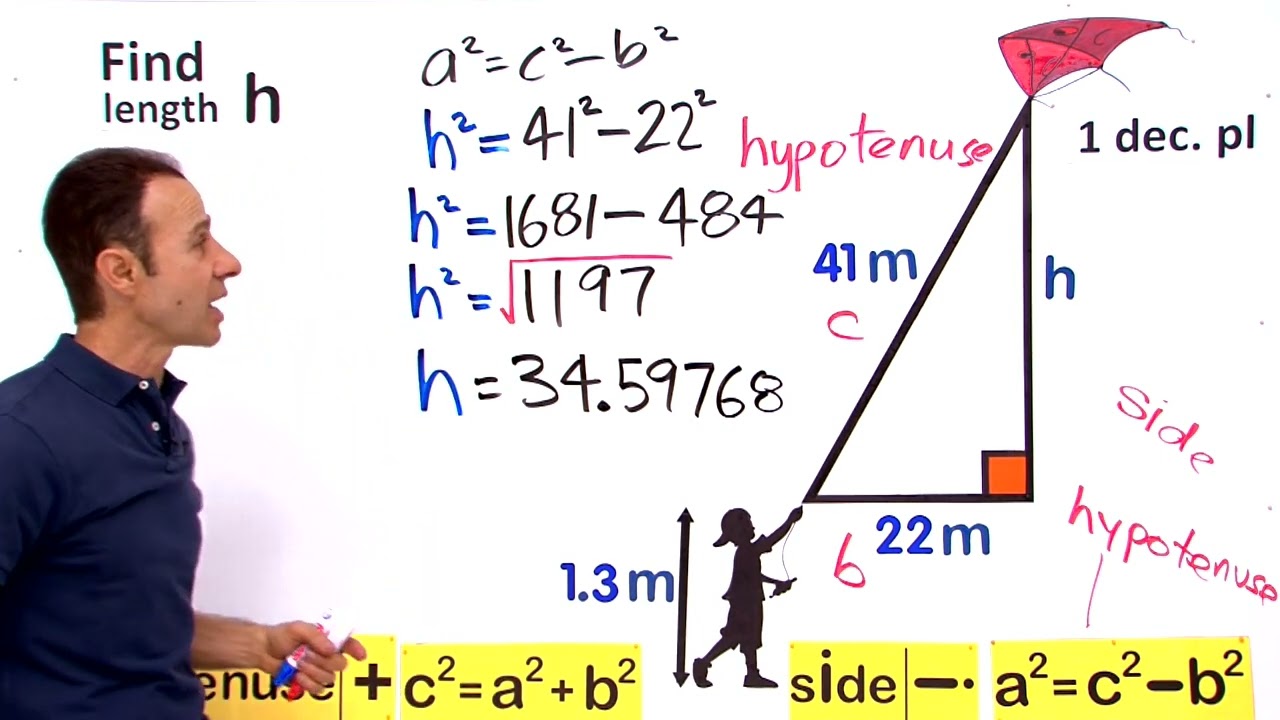 Find
length h
a²=c²-b²
h²=41²-22²
h²=1681-484
h²=√1197
h=34.59768
hypotenuse
1 dec. pl
41m
c
h
side
22m
b
hypotenuse
1.3m
enuse + c²=a²+b²
side -. a²=c²-b²